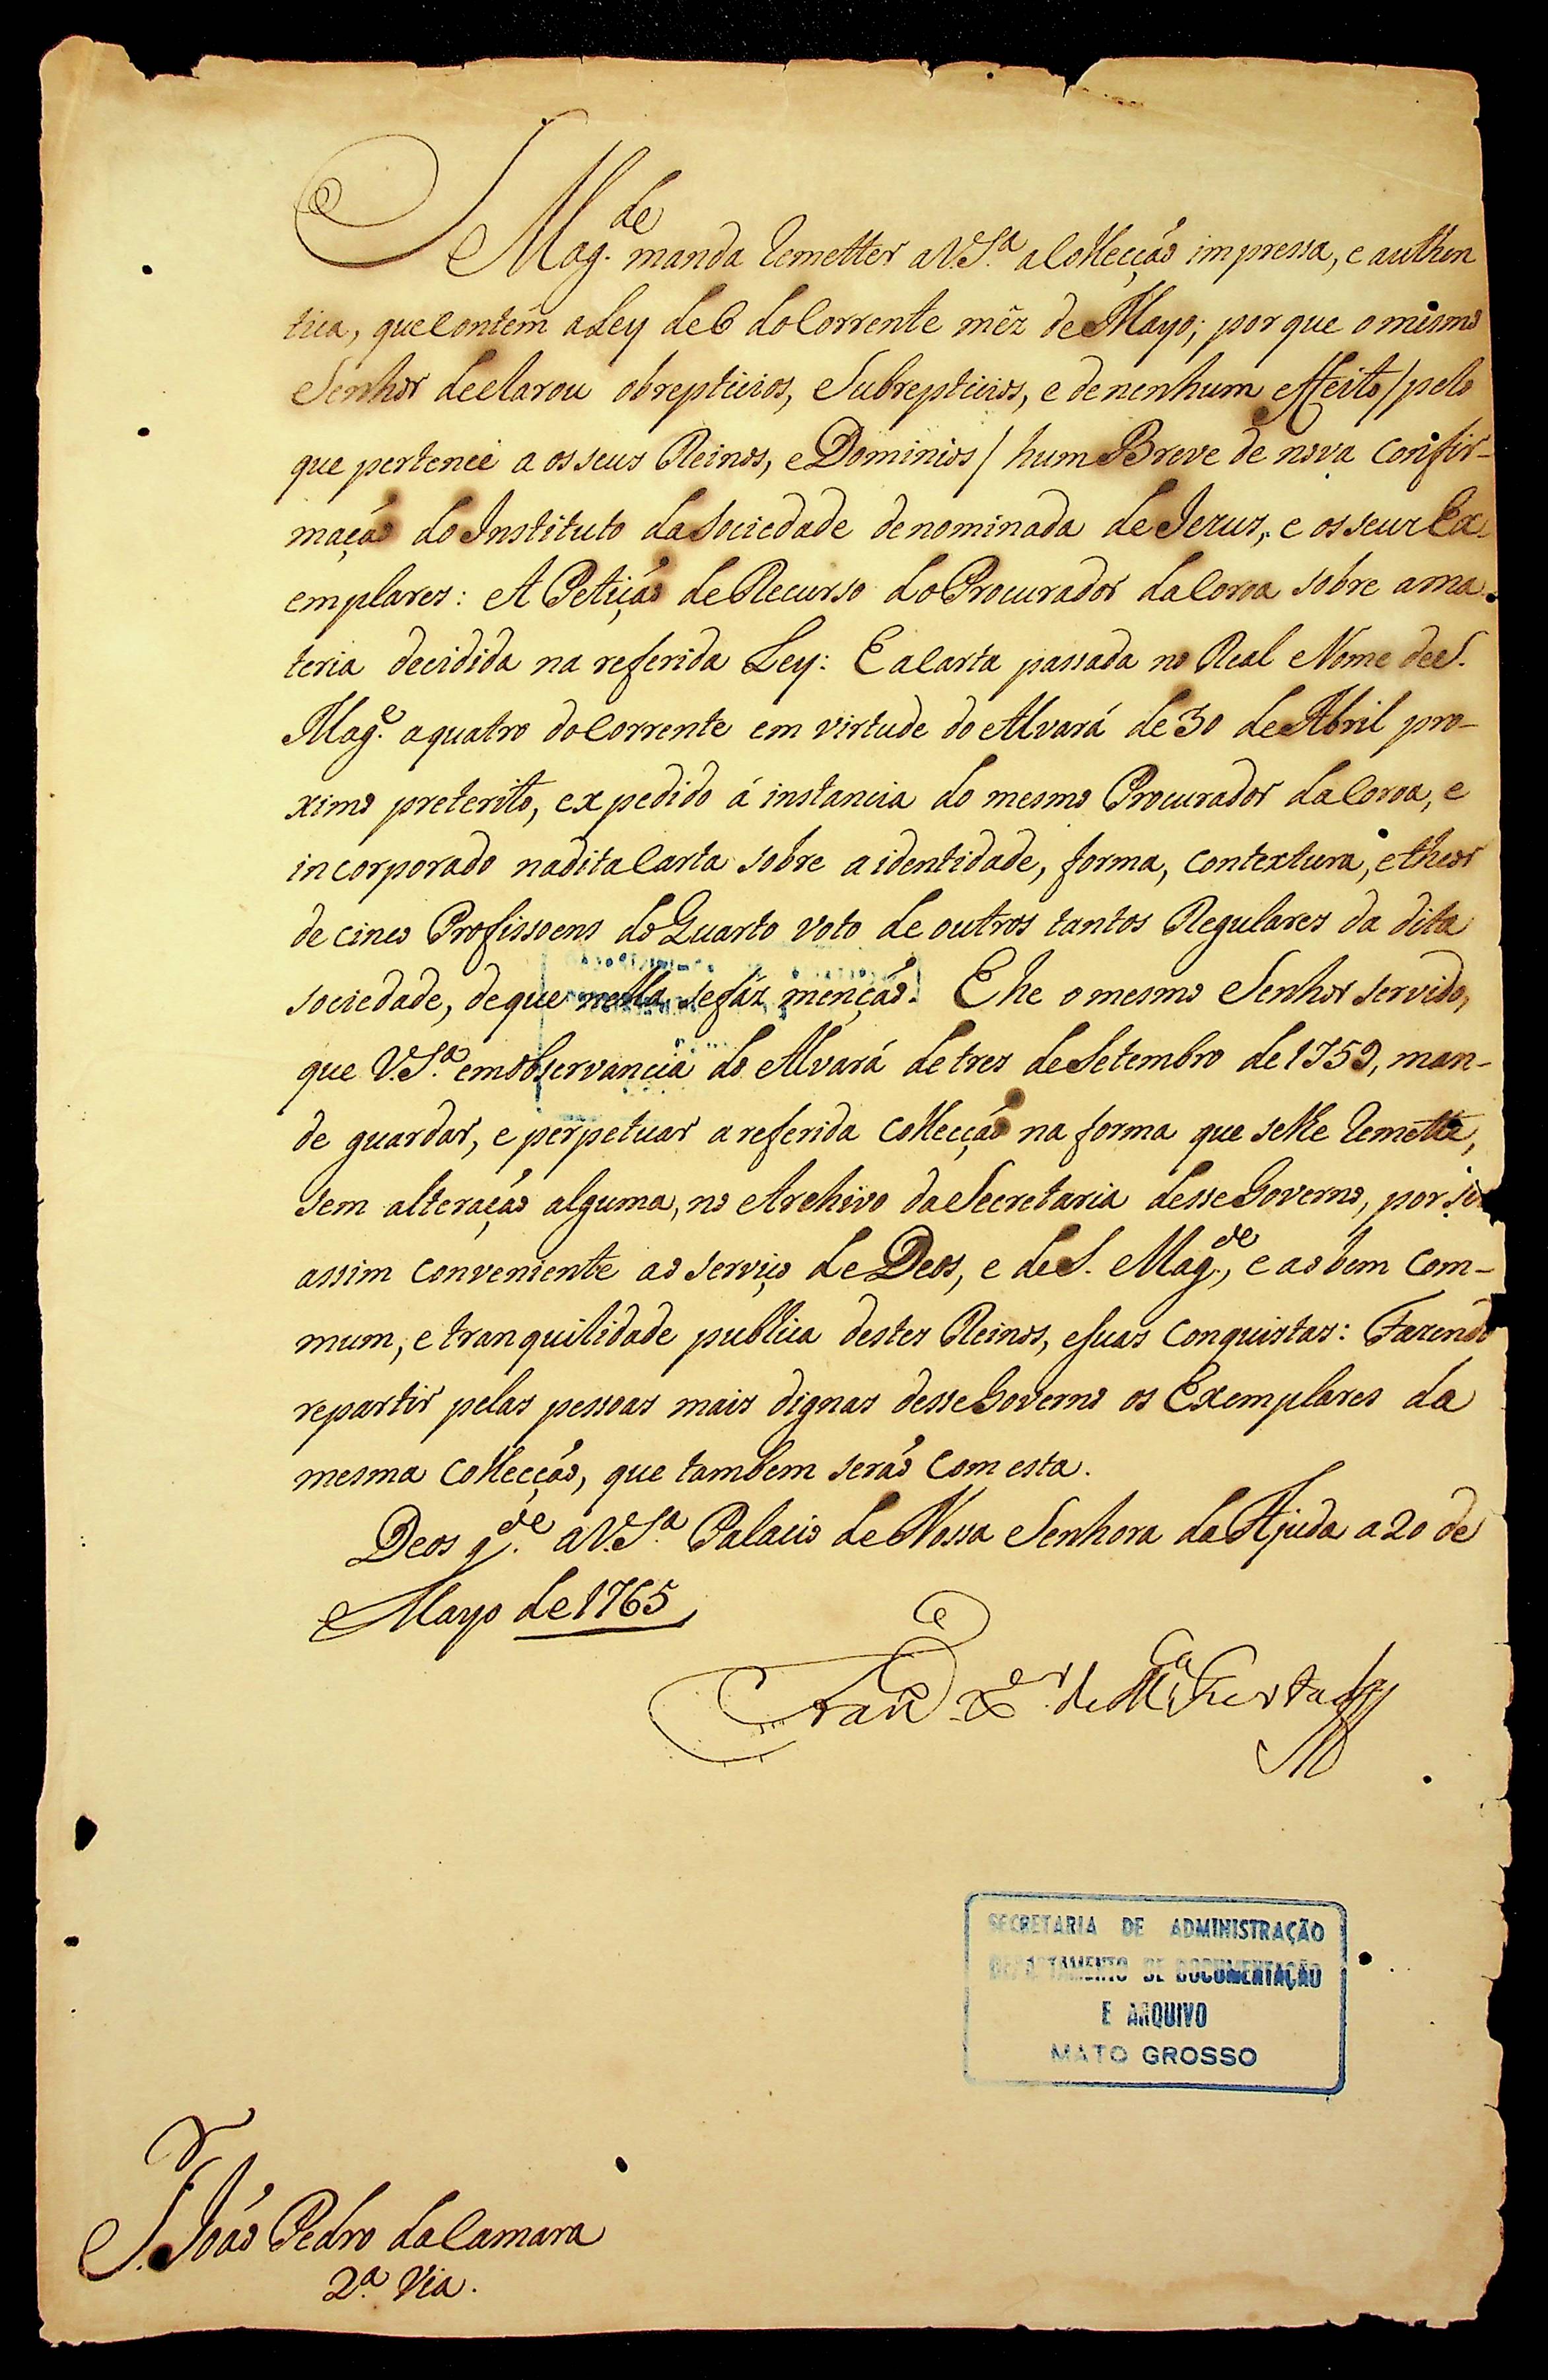 S Mag.de manda remetter a V.S.a a Collecçaõ impressa, e authen
tica, que contêm a Ley de 6 do Corrente mêz de Mayo; por que o mesmo
Senhor declarou obrepticios, e Subrepticios, e de nenhum effeito / pelo
que pertence a os seus Reinos, e Dominios / hum Breve de nova Confir-
maçaõ do Instituto da Sociedade denominada de Jezus, e os seus Ex-
emplares: A Petiçaõ de Recurso do Procurador da Coroa sobre a ma-
teria decidida na referida Ley: E a Carta passada no Real Nome de S.
Mag.e a quatro do Corrente em virtude do Alvará de 30 de Abril pro-
ximo preterito, expedido á instancia do mesmo Procurador da Coroa, e
incorporado na dita Carta sobre a identidade, forma, Contextura, e theor
de cinco Profissoens do Quarto voto de outros tantos Regulares da dita
Sociedade, de que nella se fáz mençaõ. E he o mesmo Senhor servido,
que V.S.a em observancia do Alvará de tres de Setembro de 1759, man-
de guardar, e perpetuar a referida Collecçaõ na forma que se lhe remette,
sem alteraçaõ alguma, no Archivo da Secretaria desse Governo, por ser
assim Conveniente ao serviço de Deos, e de S. Mag.de, e ao bem Com-
mum, e tranquilidade publica destes Reinos, e suas Conquistas: Fazendo
repartir pelas pessoas mais dignas desse Governo os Exemplares da
mesma Collecçaõ, que tambem seraõ Com esta.
Deos g.de a V.S.a Palacio de Nossa Senhora da Ajuda a 20 de
Mayo de 1765
Fran.co X.er de M.ca Furtado
SECRETARIA DE ADMINISTRAÇÃO
DEPARTAMENTO DE DOCUMENTAÇÃO
E ARQUIVO
MATO GROSSO
S.r Joaõ Pedro da Camara
2.a Via.